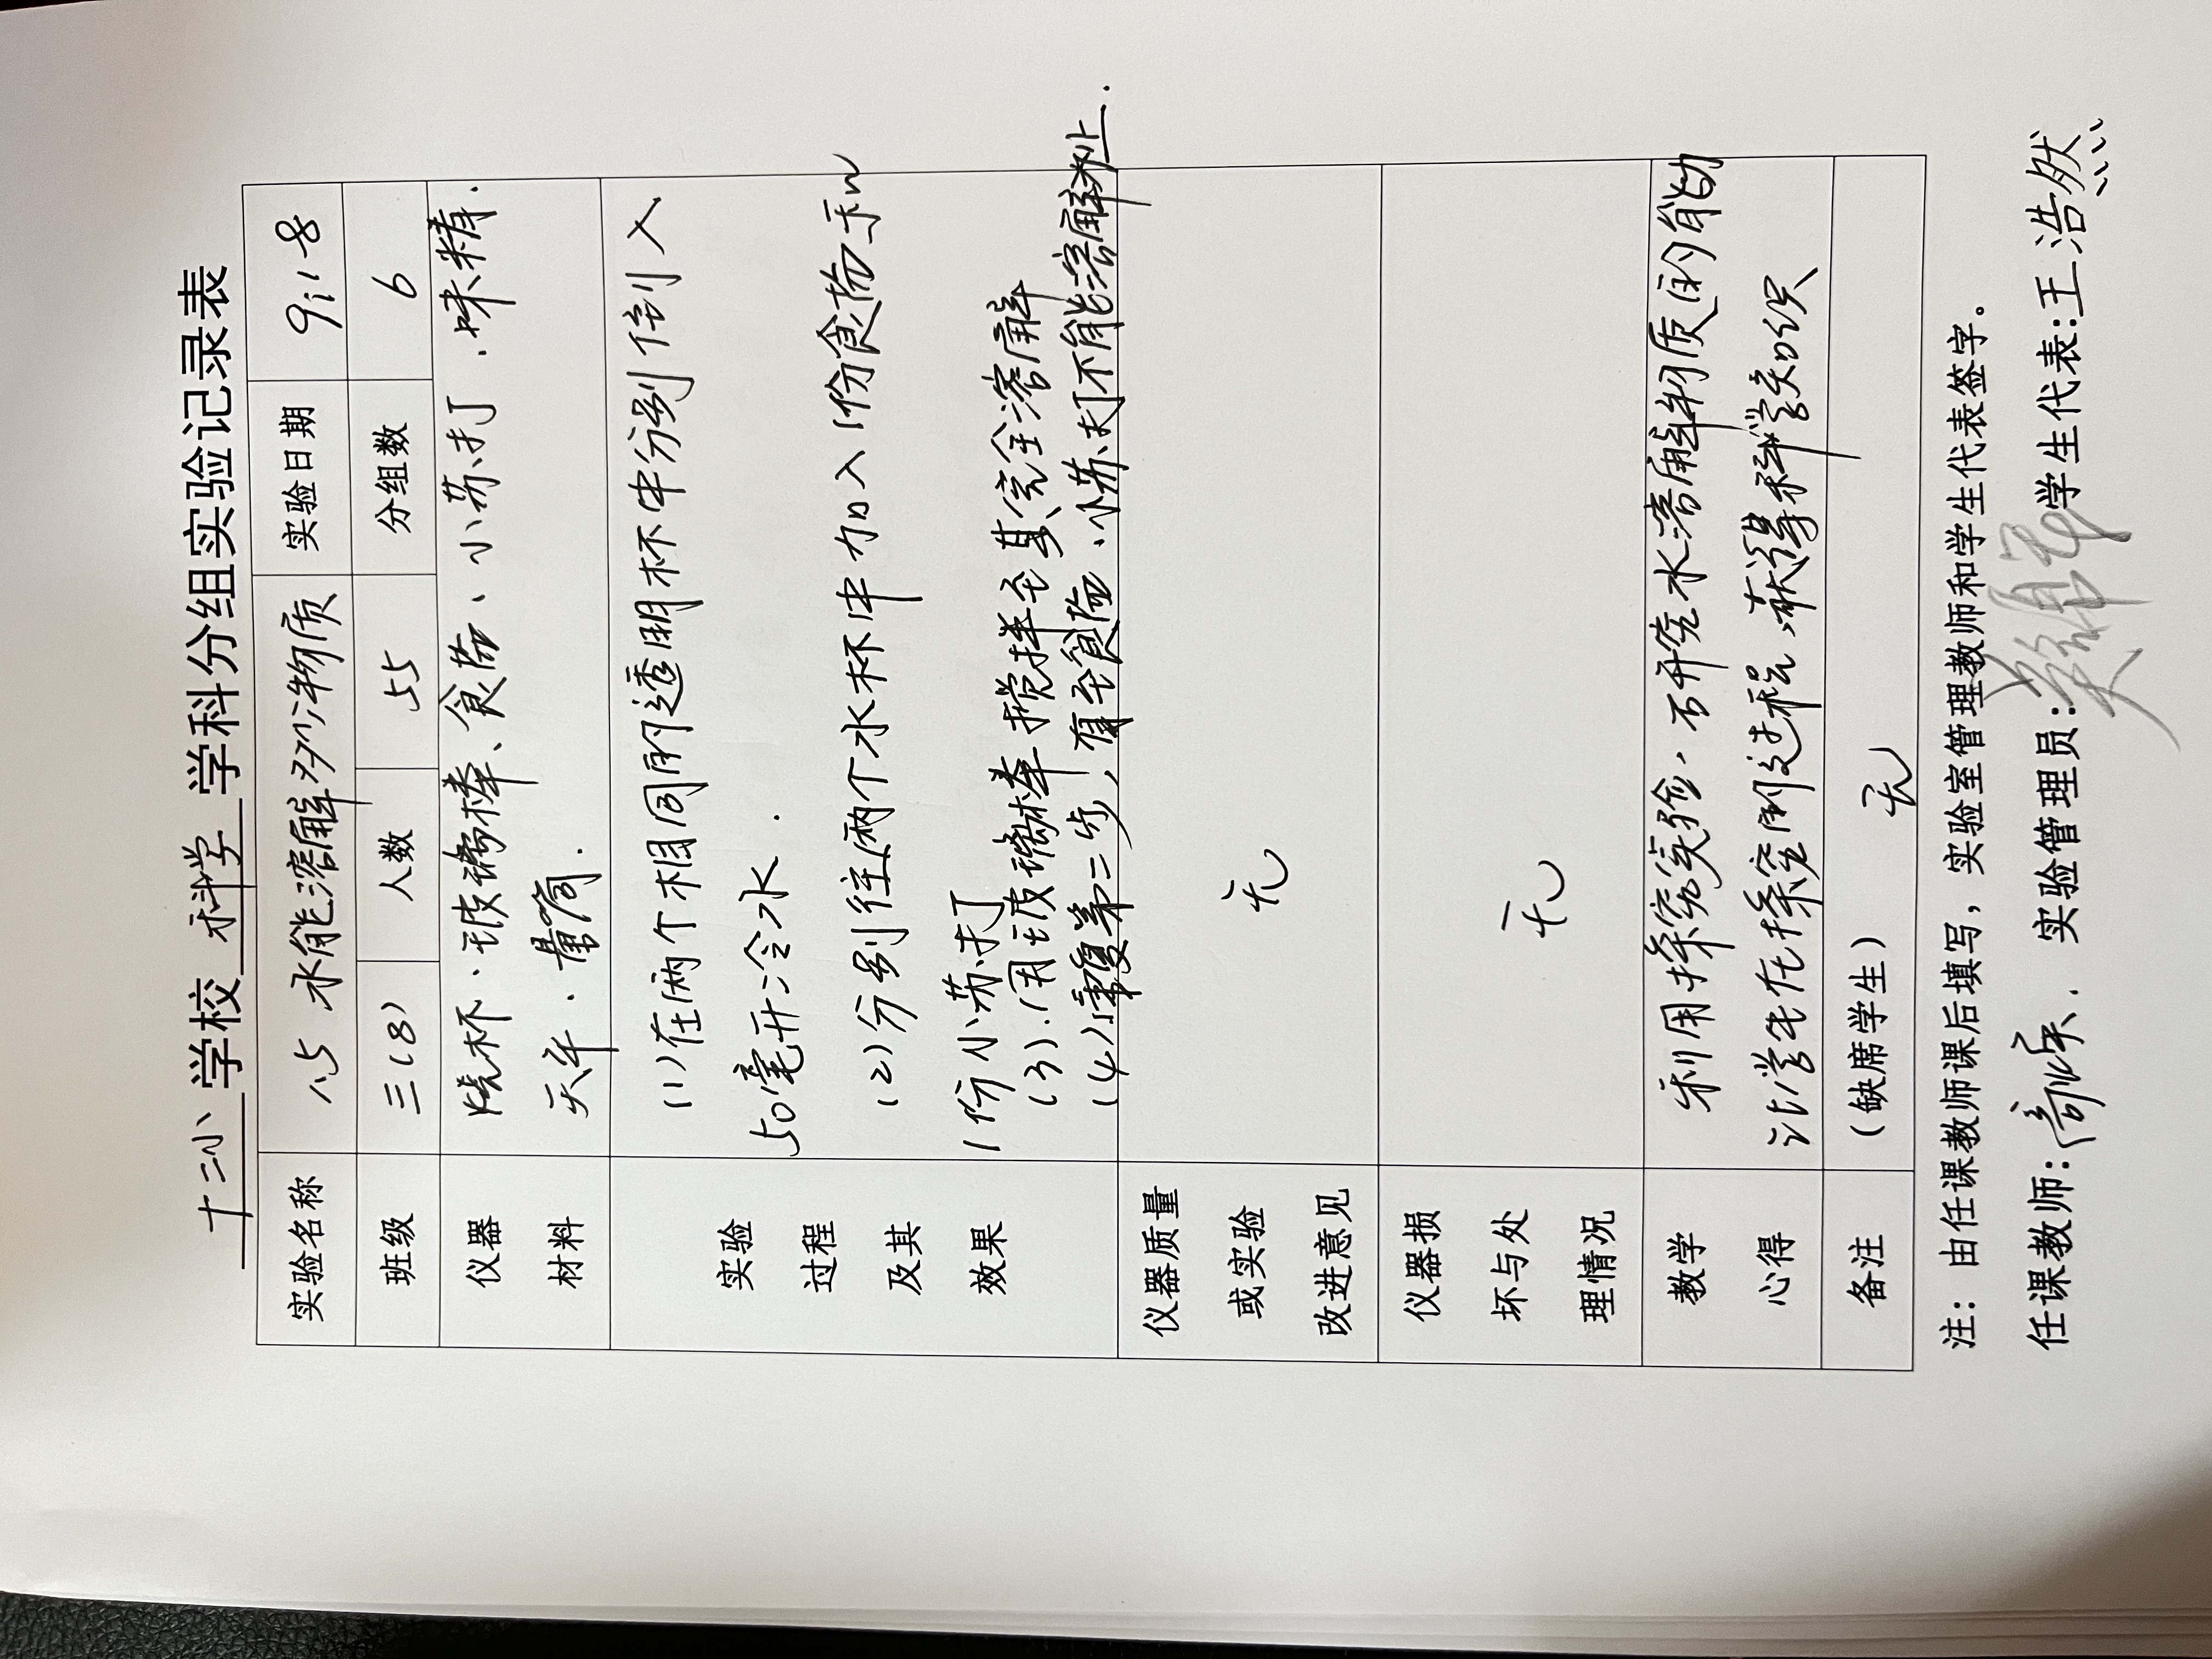 十二小 学校 科学 学科分组实验记录表
实验名称 1.5 水能溶解多少物质 实验日期 9.18
班级 三(8) 人数 55 分组数 6
仪器 烧杯、玻璃棒、食盐、小苏打、味精、
材料 天平、量筒.
实验
过程
及其
效果
(1)在两个相同的透明杯中分别倒入
50毫升冷水.
(2)分别往两个水杯中加入1份食盐和
1份小苏打
(3).用玻璃棒搅拌至其完全溶解
(4)重复第二步,直至食盐、小苏打不能溶解为止.
仪器质量
或实验
改进意见
无
仪器损
坏与处
理情况
无
教学 利用探究实验,研究水溶解物质的能力
心得 让学生在探究的过程,获得科学知识
备注 (缺席学生) 无
注:由任课教师课后填写,实验室管理教师和学生代表签字。
任课教师: 实验管理员: 学生代表:王浩然